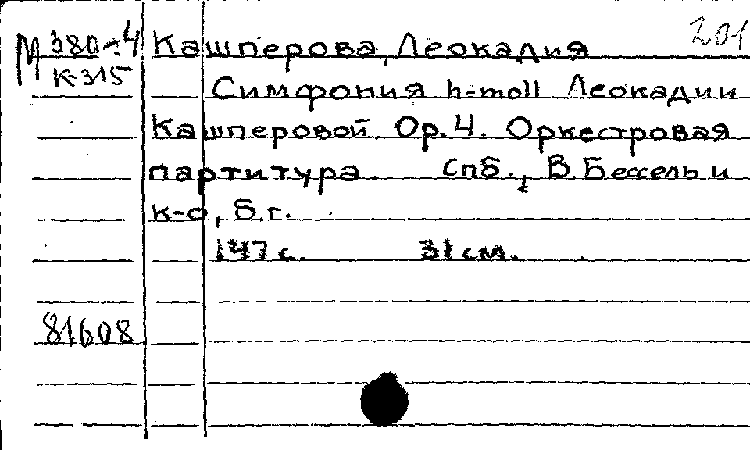 201
М 380-4 Кашперова, Леокадия
К-315
Симфония h-moll Леокадии
Кашперовой. Op. 4. Оркестровая
партитура. Спб., В. Бессель и
к-о, б.г.
147 с. 31 см.
81608